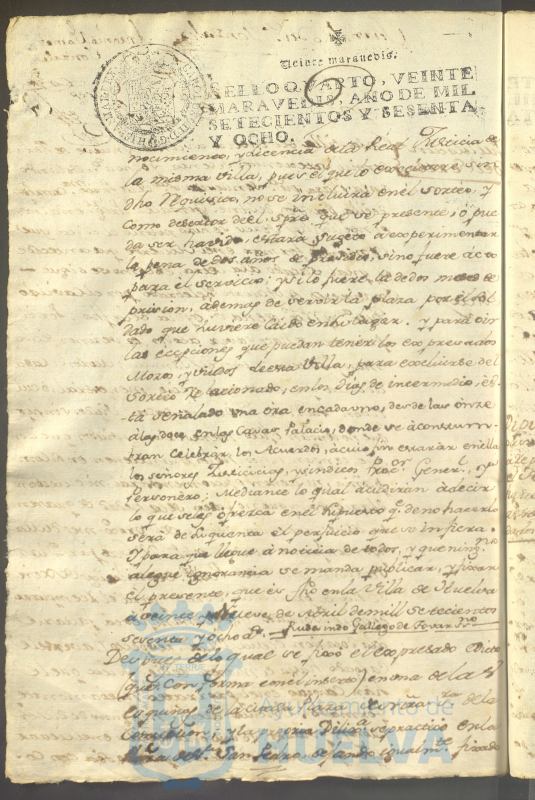 Veinte maravedis.
SELLO QVARTO, VEINTE
MARAVEDIS, AÑO DE MIL
SETECIENTOS Y SESENTA
Y OCHO.
nocimiento, y licencia de la Real Justicia de
la misma villa, pues el que lo executare sin
dho requisito, no se incluira en el sorteo, y
como desertor del, spre que se presente, ò pue
da ser havido, estara sugeto à experimentar
la pena de dos años de presidio, sino fuere apto
para el servicio, y si lo fuere la de dos meses de
prission, ademas de servir la plaza por el sol
dado que huviere caido en su lugar. y para oir
las excepciones que puedan tener los expresados
Mozos, y viudos de esta villa, para excluirse del
sorteo relacionado, en los dias de intermedio, es
tà señalado una ora en cada uno, desde las onze
à las doce en las Casas Palacio, donde se acostum
bran celebrar los Acuerdos, à cuio fin estaràn en ella
los señores Justicias, sindico Procor. Generl. y su
Personero; Mediante lo qual acudiràn à decir
lo que se les ofrezca en el supuesto q. de no hacerlo
serà de su quenta el perjuicio que se infiera.
Y para que llegue à noticia de todos, y que ning.no
alegue ignorancia se manda publicar, y fixar
el presente, que es fho en la Villa de Huelva
à veinte y nueve de Abril de mill setecientos
sesenta y ocho as. Rudesindo Gallego de Tovar
Despues de lo qual se fixò el expresado Edicto
(que conforma con el inserto) en una de las
esquinas de la Plaza de nra. sra. de la
y la propia se practicò en la
de Sn. San Pedro, dejando igualmte. fixado
Ayuntamiento de
HUELVA